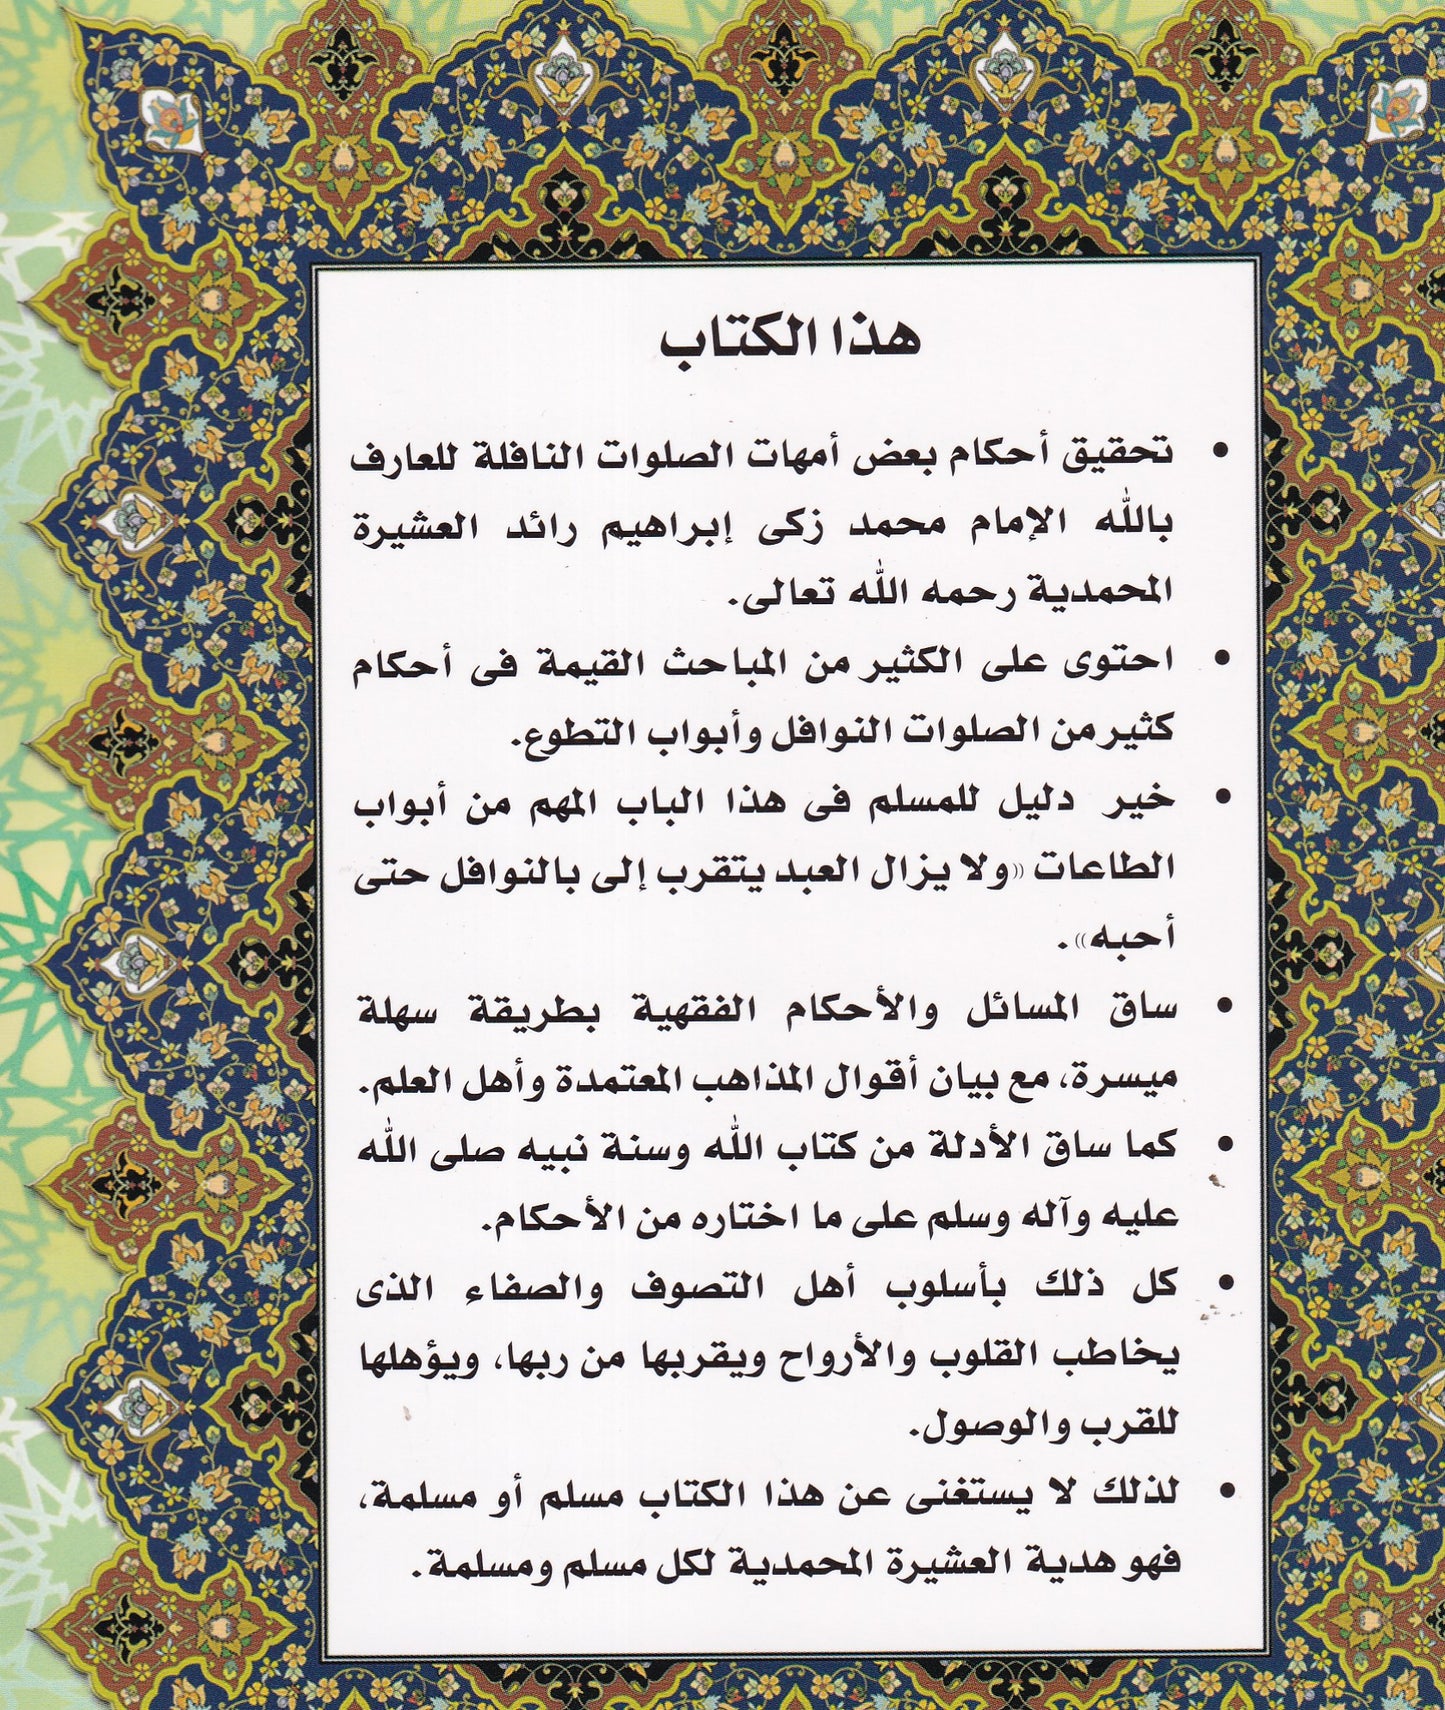 هذا الكتاب
• تحقيق أحكام بعض أمهات الصلوات النافلة للعارف
بالله الإمام محمد زكى إبراهيم رائد العشيرة
المحمدية رحمه الله تعالى.
• احتوى على الكثير من المباحث القيمة فى أحكام
كثير من الصلوات النوافل وأبواب التطوع.
• خير دليل للمسلم فى هذا الباب المهم من أبواب
الطاعات ((ولا يزال العبد يتقرب إلى بالنوافل حتى
أحبه)).
• ساق المسائل والأحكام الفقهية بطريقة سهلة
ميسرة، مع بيان أقوال المذاهب المعتمدة وأهل العلم.
• كما ساق الأدلة من كتاب الله وسنة نبيه صلى الله
عليه وآله وسلم على ما اختاره من الأحكام.
• كل ذلك بأسلوب أهل التصوف والصفاء الذى
يخاطب القلوب والأرواح ويقربها من ربها، ويؤهلها
للقرب والوصول.
• لذلك لا يستغنى عن هذا الكتاب مسلم أو مسلمة،
فهو هدية العشيرة المحمدية لكل مسلم ومسلمة.